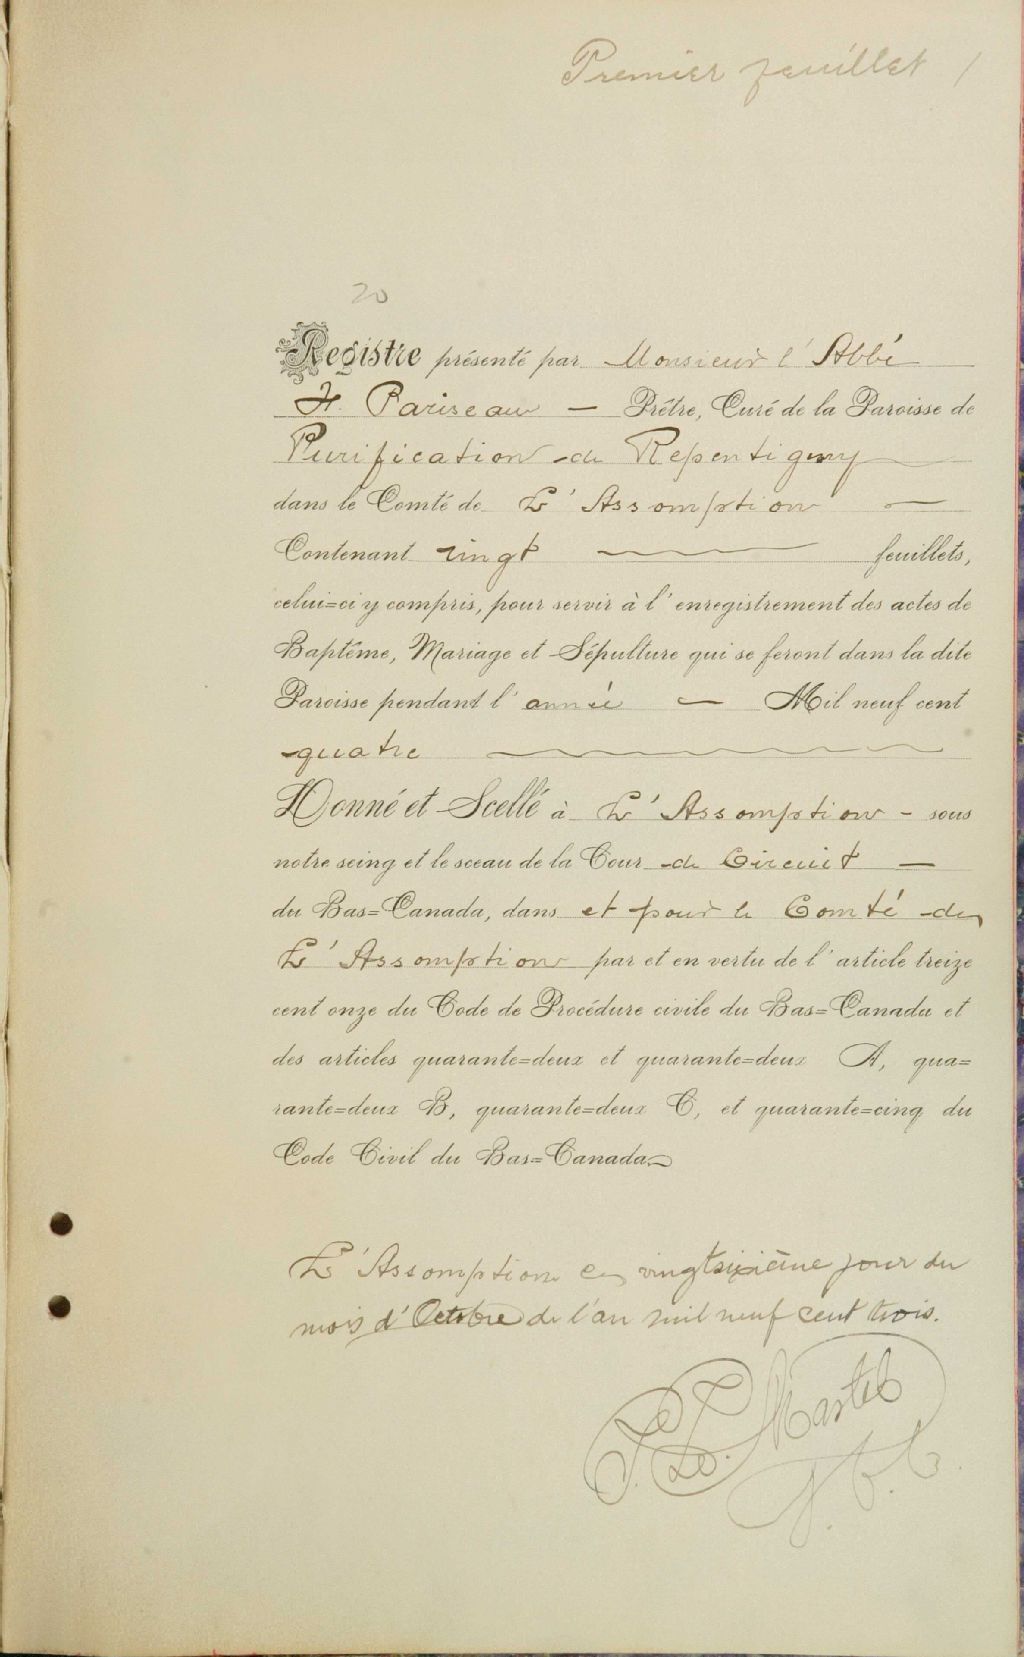 Premier feuillet 1
20
Registre présenté par Monsieur l'Abbé
F. Pariseau — Prêtre, Curé de la Paroisse de
Purification de Repentigny
dans le Comté de L'Assomption —
Contenant vingt feuillets,
celui=ci y compris, pour servir à l'enregistrement des actes de
Baptême, Mariage et Sépulture qui se feront dans la dite
Paroisse pendant l'année — Mil neuf cent
quatre
Donné et Scellé à L'Assomption - sous
notre seing et le sceau de la Cour de Circuit —
du Bas=Canada, dans et pour le Comté de
L'Assomption par et en vertu de l'article treize
cent onze du Code de Procédure civile du Bas=Canada et
des articles quarante=deux et quarante=deux A, qua=
rante=deux B, quarante=deux C, et quarante=cinq du
Code Civil du Bas=Canada
L'Assomption ce vingtsixième jour du
mois d'Octobre de l'an mil neuf cent trois.
Martel